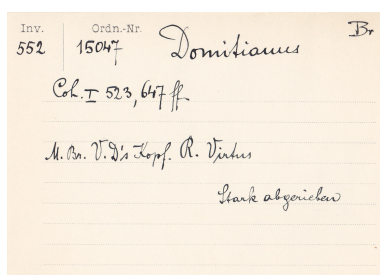 Inv. Ordn.-Nr. Br
552 15047 Domitianus
Coh. I 523, 647 ff
M. Br. V. D's Kopf. R. Virtus
Stark abgerieben